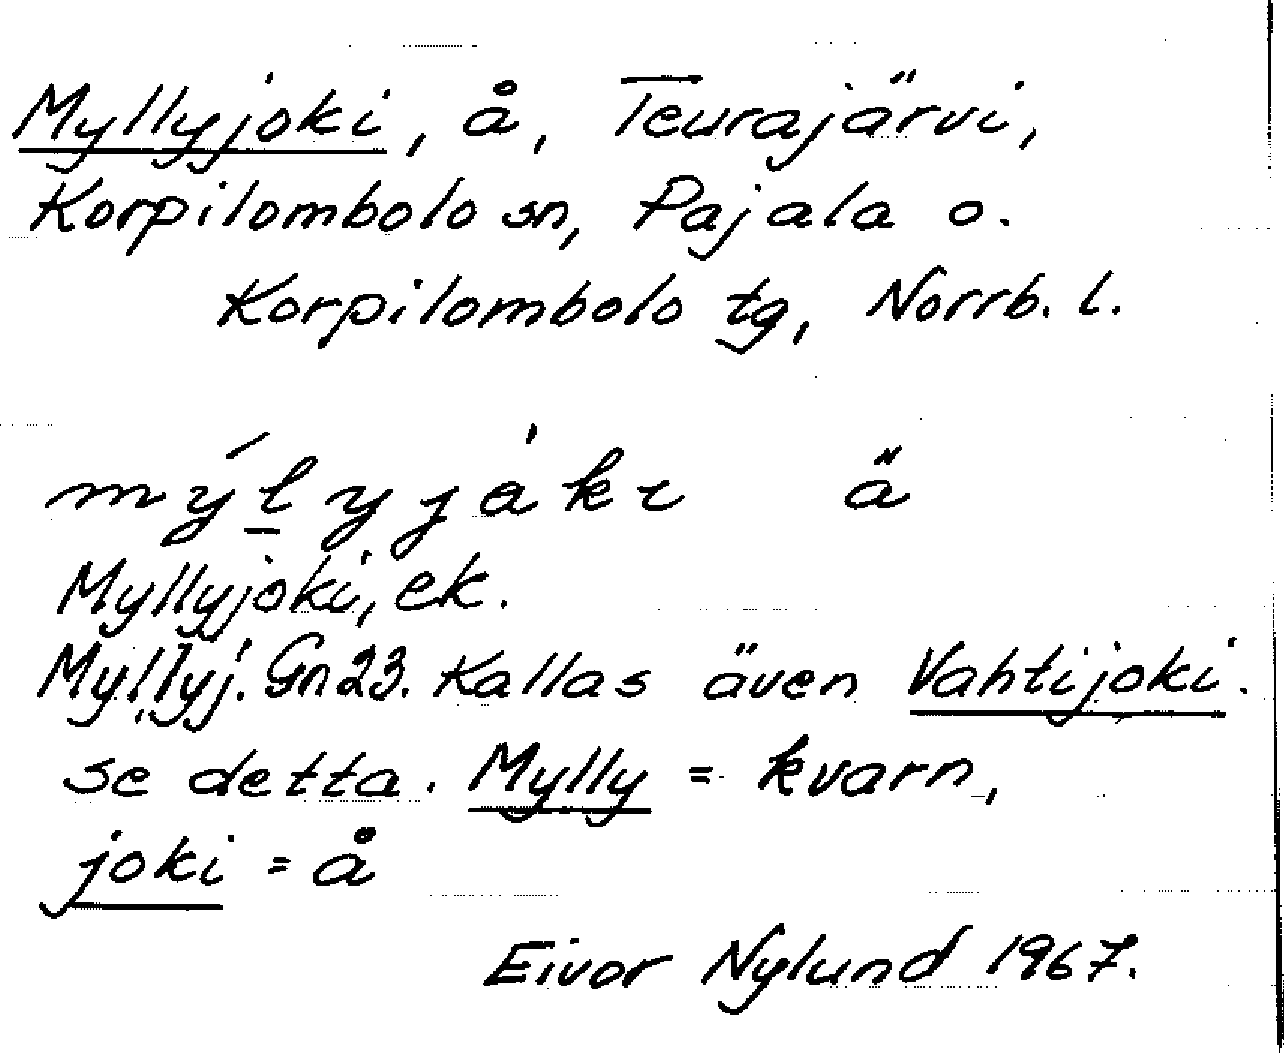 Myllyjoki, å, Teurajärvi,
Korpilombolo sn, Pajala o.
Korpilombolo tg, Norrb. l.
Myllyjoki, ek.
Myllyj. Gn 23. Kallas även Vahtijoki.
se detta. Mylly = kvarn,
joki = å
Eivor Nylund 1967.